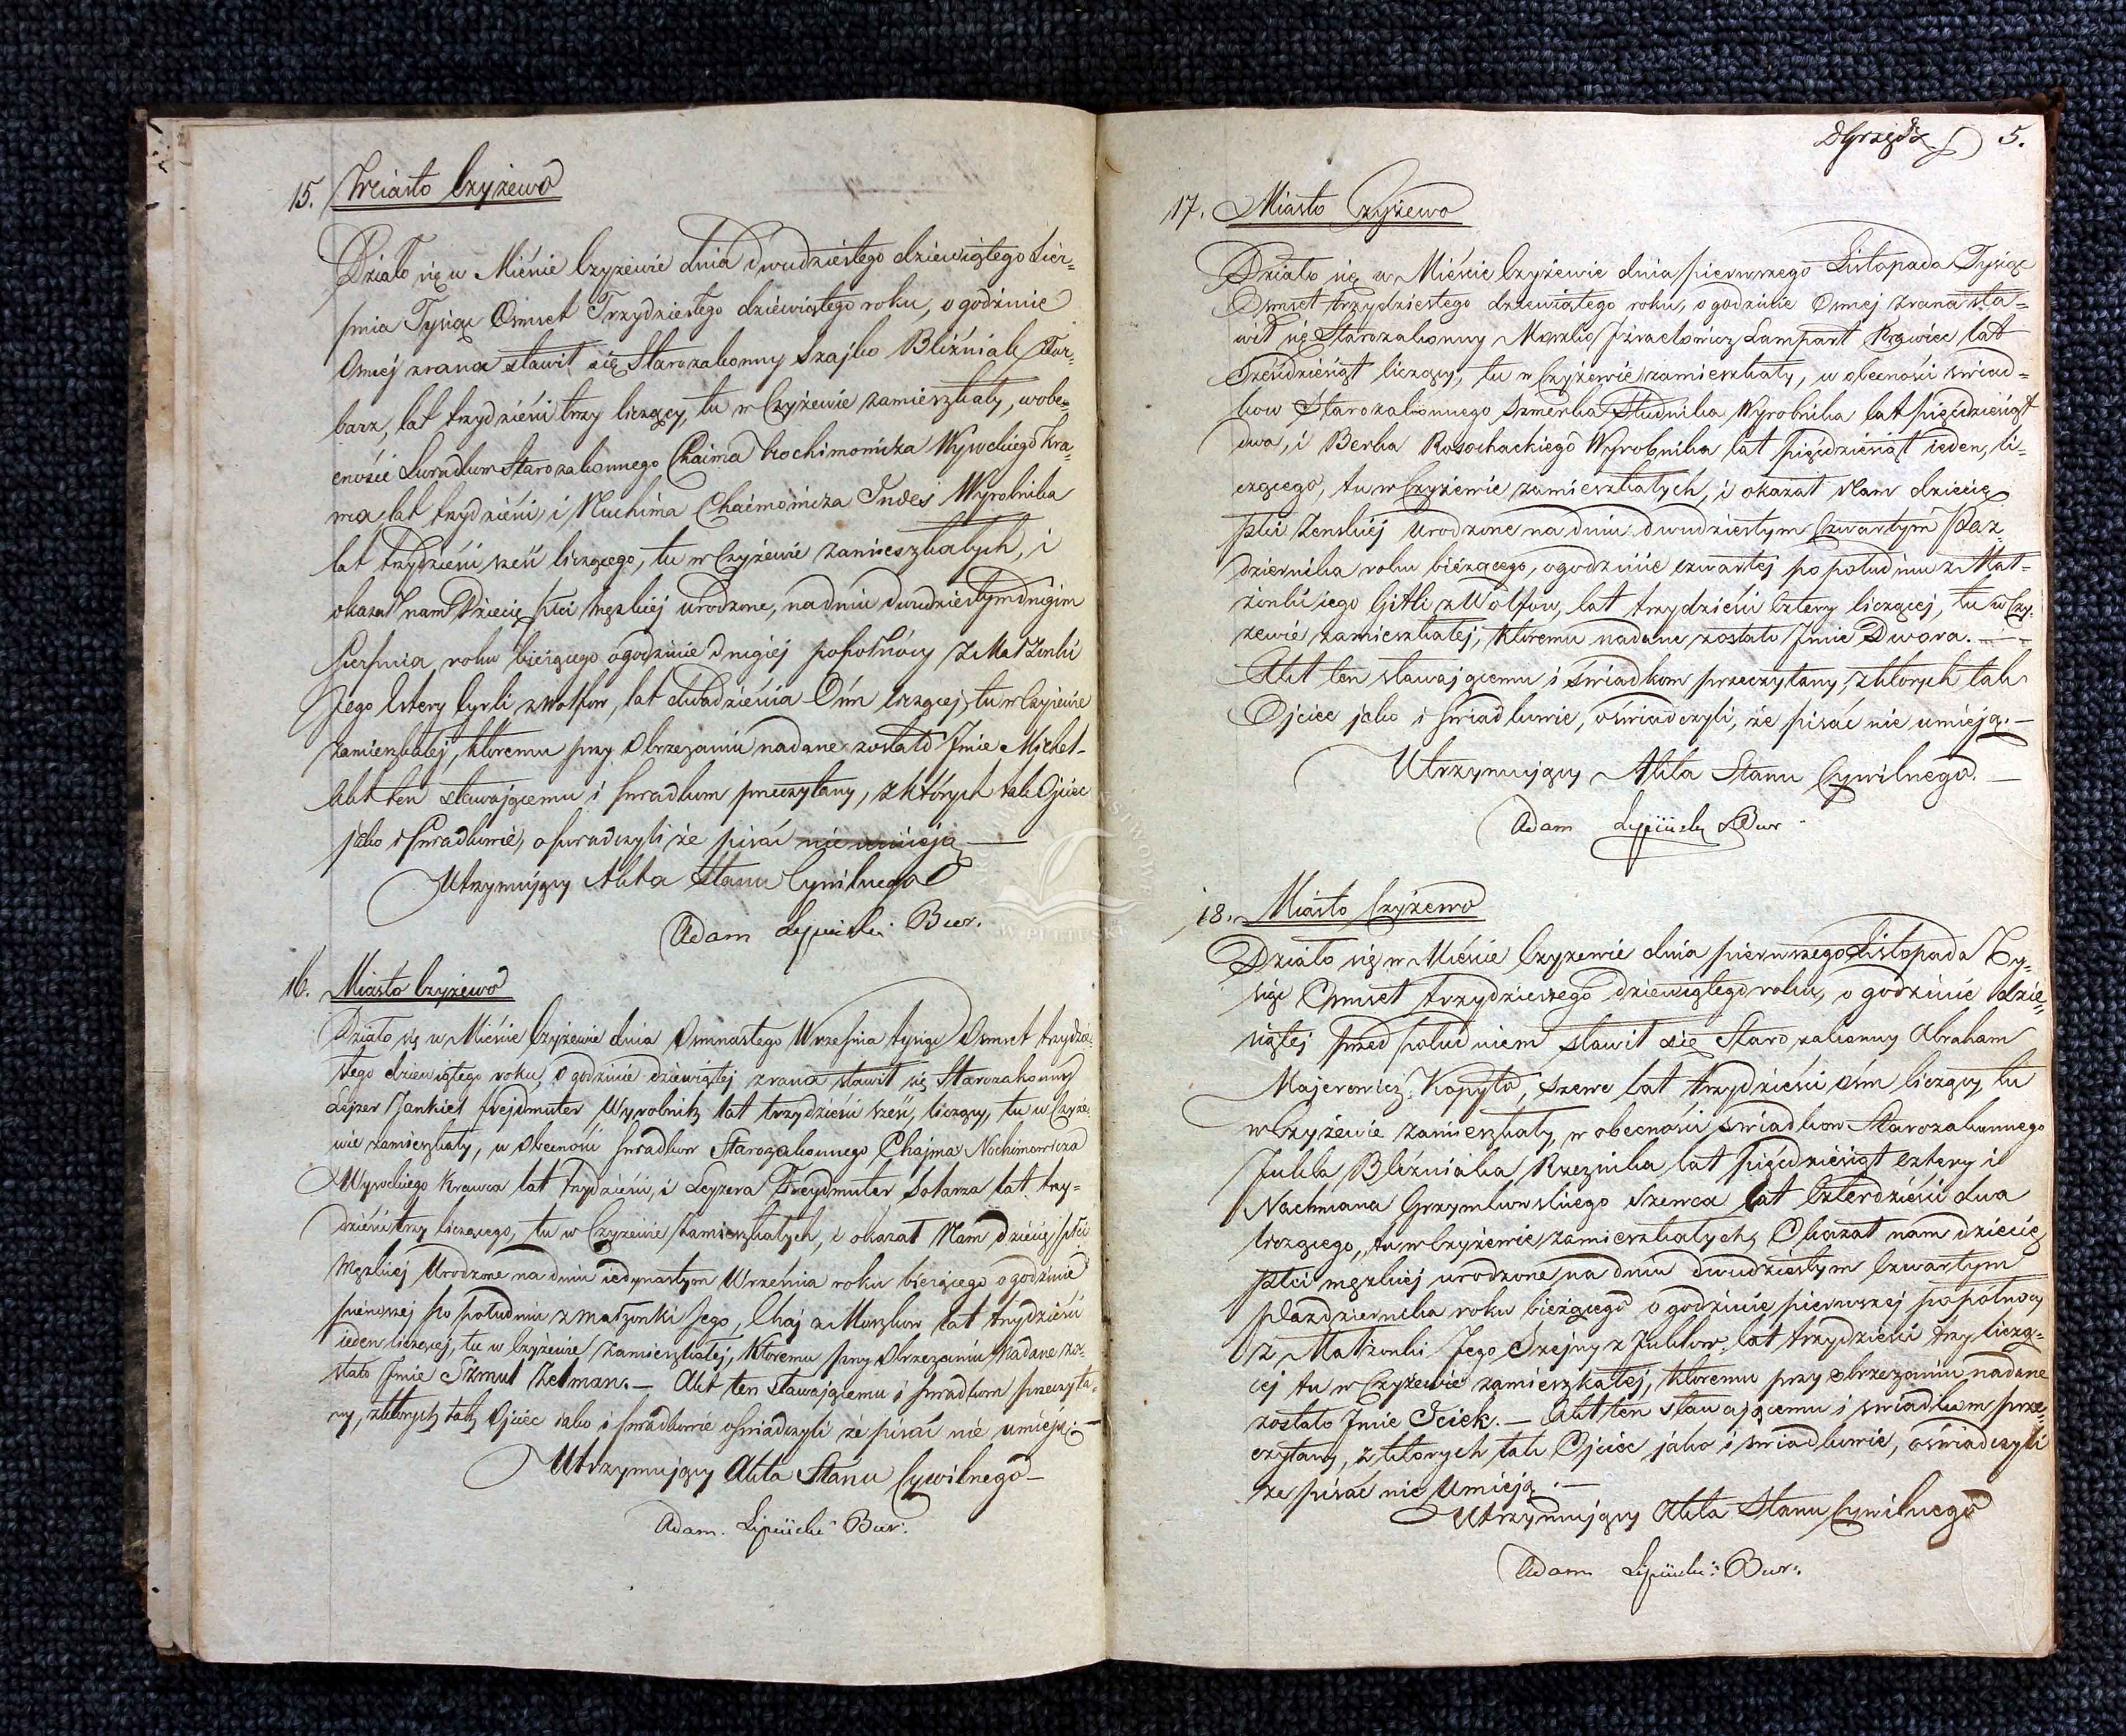 15. Miasto Czyżewo
Działo się w Mieście Czyżewie dnia dwudziestego dziewiątego Sier=
pnia Tysiąc Osmset Trzydziestego dziewiątego roku, o godzinie
Osmej zrana stawił się Starozakonny Szajko Bliźniak Tar=
barz, lat trzydzieści trzy liczący, tu w Czyżewie zamieszkały, wobe=
cności Swiadkow Starozakonnego Chaima Wysockiego Kra=
wca lat trzydzieści, i Nuchima Chaimowicza Wyrobnika
lat trzydzieści sześć liczącego, tu w Czyżewie zamieszkałych, i
okazał nam Dziecię płci męzkiej urodzone, na dniu dwudziestym drugim
Sierpnia roku bieżącego o godzinie drugiej popołnócy z Małżonki
Jego Estery Cyrli z Wolfow, lat dwadzieścia Ośm liczącej, tu w Czyżewie
zamieszkałej, ktoremu przy Obrzezaniu nadane zostało Jmie Michel-
Akt ten stawającemu i swiadkom przeczytany, z których tak Ojciec
jako i swiadkowie, oswiadczyli że pisać nie umieją
Utrzymujący Akta Stanu Cywilnego
Adam Lipiński Bur.
16. Miasto Czyżewo
Działo się w Mieście Czyżewie dnia Osmnastego Września tysiąc Osmset trzydzie=
stego dziewiątego roku, o godzinie dziewiątej zrana stawił się Starozakonny
Lejzer Jankiel Frejdmuter Wyrobnik lat trzydzieści sześć, liczący, tu w Czyże=
wie zamieszkały, w obecności swiadkow Starozakonnego Chajma Nochimowicza
Wysockiego Krawca lat trzydzieści, i Leyzera Freydmuter lat trzy=
dzieści trzy liczącego, tu w Czyżewie zamieszkałych, i okazał Nam dziecię płci
Męzkiej Urodzone na dniu iedynastym Września roku bieżącego o godzinie
pierwszej po południu z małżonki Jego, Chaj z Moszkow lat trzydzieści
ieden liczącej, tu w Czyżewie zamieszkałej, Ktoremu przy Obrzezaniu Nadane zo=
stało Jmie Szmul Zelman. — Akt ten stawającemu i swiadkom przeczyta=
ny, z ktorych tak Ojciec iako i swiadkowie oswiadczyli że pisać nie umieją. —
Utrzymujący Akta Stanu Cywilnego —
Adam Lipiński Bur.
5.
17. Miasto Czyżewo
Działo się w Mieście Czyżewie dnia pierwszego Listopada Tysiąc
Osmset trzydziestego dziewiątego roku, o godzinie Osmej zrana sta=
wił się Starozakonny Moszko Jzraelowicz Lampart Krawiec lat
Sześćdziesiąt liczący, tu w Czyżewie zamieszkały, w obecności swiad=
kow Starozakonnego Szmerka Studnika Wyrobnika lat pięćdziesiąt
dwa, i Berka Rosochackiego Wyrobnika lat pięćdziesiąt ieden, li=
czącego, tu w Czyżewie zamieszkałych, i okazał Nam dziecię
płci Zenskiej Urodzone na dniu dwudziestym Czwartym Paz=
dziernika roku bieżącego, o godzinie czwartej popołudniu z Mał=
żonki iego Gitli z Wolfow, lat trzydzieści Cztery liczącej, tu w Czy=
żewie zamieszkałej, ktoremu nadane zostało Jmie Dwora. —
Akt ten stawającemu i Swiadkom przeczytany, z ktorych tak
Ojciec jako i Swiadkowie, oświadczyli, że pisać nie umieją. —
Utrzymujący Akta Stanu Cywilnego. —
Adam Lipiński Bur
18. Miasto Czyżewo
Działo się w Mieście Czyżewie dnia pierwszego Listopada Ty=
siąc Osmset trzydziestego dziewiątego roku, o godzinie dzie=
siątej przed południem stawił się Starozakonny Abraham
Majerowicz Kopyto, Szewc lat trzydzieści ośm liczący, tu
w Czyżewie zamieszkały, w obecności swiadkow Starozakonnego
Judka Bliźniaka Rzeznika lat pięćdziesiąt cztery i
Nachmana Grzymkowskiego Szewca lat Czterdzieści dwa
liczącego, tu w Czyżewie zamieszkałych, Okazał nam dziecię
płci męzkiej urodzone na dniu dwudziestym Czwartym
Pazdziernika roku bieżącego o godzinie pierwszej popołnocy
z Małżonki Jego Szejny z Judkow, lat trzydzieści trzy licząc=
cej tu w Czyżewie zamieszkałej, ktoremu przy obrzezaniu nadane
zostało Jmie Jciek. — Akt ten stawającemu i swiadkom prze=
czytany, z ktorych tak Ojciec jako i swiadkowie, oświadczyli
że pisać nie Umieją. —
Utrzymujący Akta Stanu Cywilnego
Adam Lipiński Bur.
W PUŁTUSKU